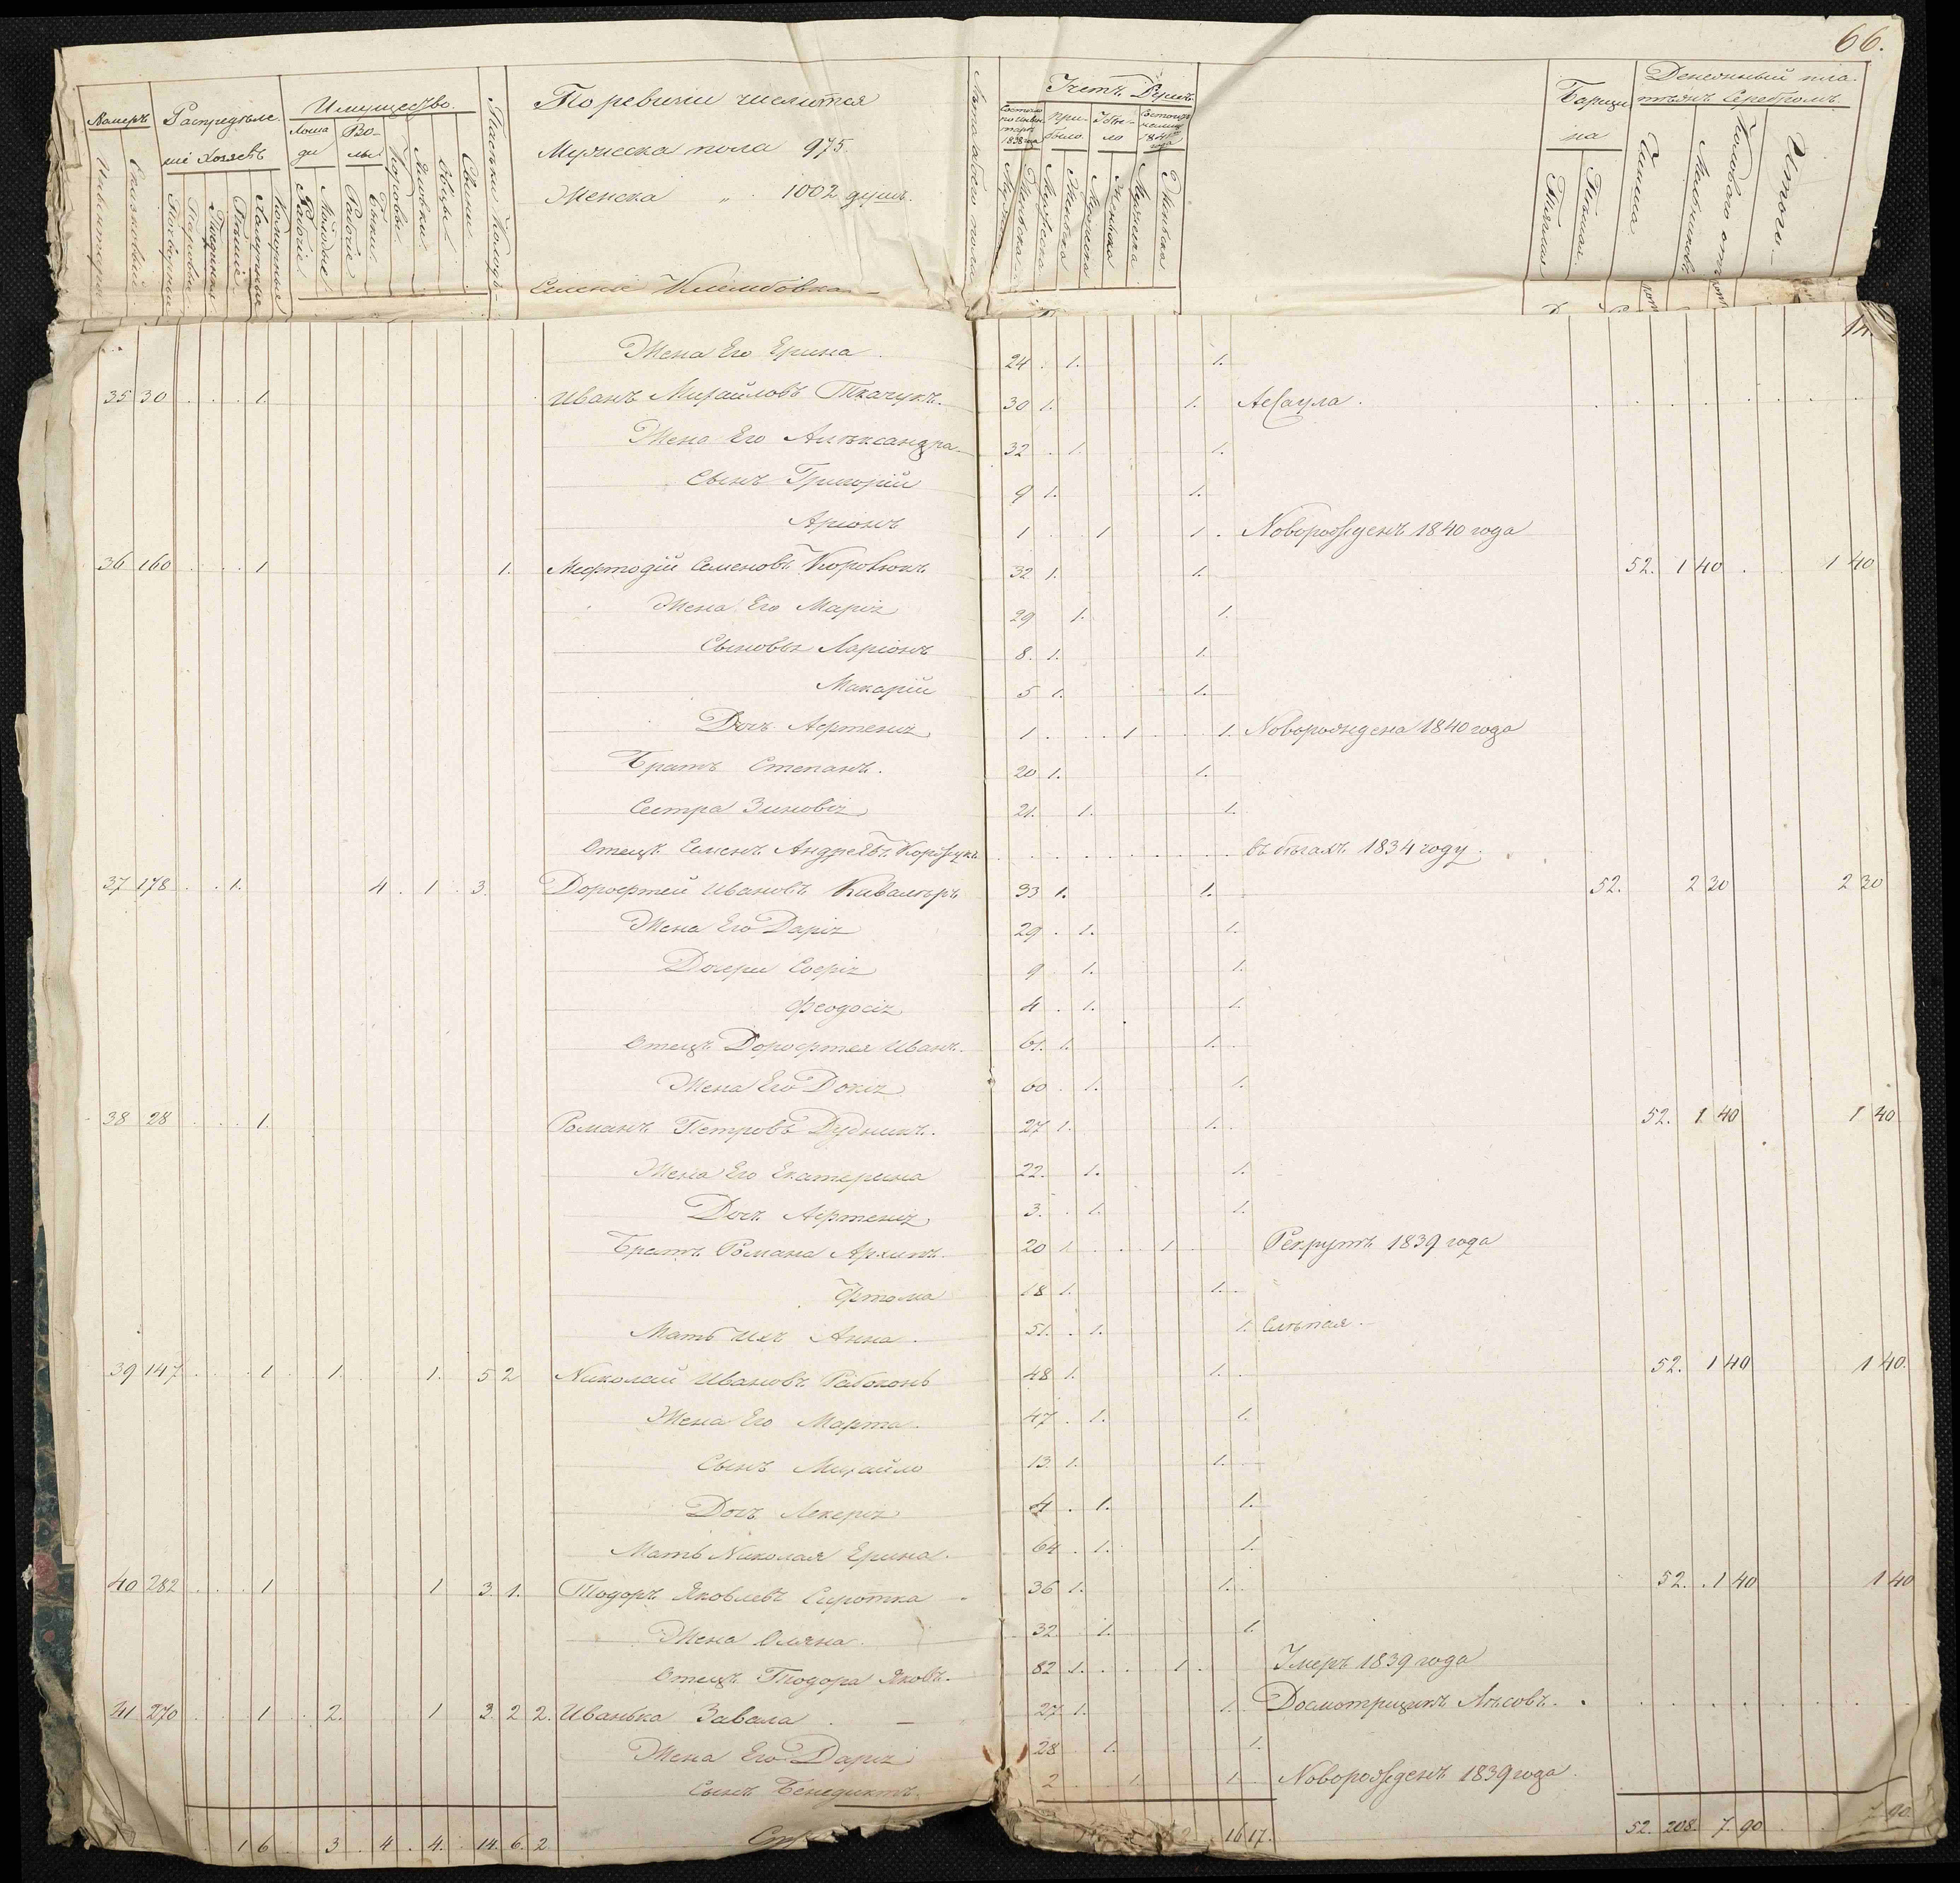 66.
Номеръ
Инвентаря
Сказковый
Распредѣле
ніе Хозяевъ
Тягловыи
Паровыи
Пѣшіе
Халупные
Имущество
Лоша
ди
Рабочіе
Молодые
Во-
лы
Рабочіе
Бычки
Коровы
Яловки
Овцы
Свиньи
По ревизіи числится
Мужеска пола 975.
Женска „ 1002 душъ.
Селеніе Клембовка
Учетъ Ревиз.
при-
было
Убы-
ло
Мужеска
Женска
Мужеска
Женска
Мужеска
Женска
Барщи
на
Тяглая
Пѣшая
Денежный пла-
тежъ Серебромъ
Чинша
Итого
14.
Жена Его Ерина 24 . 1. 1.
35 30 . . . 1. Иванъ Михайловъ Ткачукъ. 30 1. 1. Асаула .
Жена Его Александра 32 . 1. 1.
Сынъ Григорій 9 1. 1.
Аріонъ 1 . . 1 1 . Новорожденъ 1840 года
36 160 . . . 1 1. Мефтодій Семеновъ Коровюкъ 32 1. 1. 52. 1 40 . 1 40
Жена Его Марія 29 1. 1.
Сыновья Ларіонъ 8. 1. 1.
Макарій 5 1. 1.
Дочь Афтенія 1 . . . 1 . . 1. Новорождена 1840 года
Братъ Степанъ. 20 1. 1.
Сестра Зиновія 21. 1. 1.
Отецъ Семенъ Андреевъ въ бѣгахъ 1834 году.
37 178 . . 1. 4 . 1 . 3. Дорофтей Ивановъ 33 1. 1. 52. 2 30 2 30
Жена Его Дарія 29 . 1. 1.
Дочери Софія 9 1. 1.
Феодосія 4 . 1. 1.
Отецъ Дорофтея Иванъ. 61. 1. 1.
Жена Его Докія 60 . 1. 1.
38 28 . . . 1. Романъ Петровъ Дудникъ. 27 1. 1. 52. 1 40 1 40
Жена Его Екатерина 22. 1. 1.
Дочь Афтенія 3. . 1. 1.
Братъ Романа Архипъ. 20 1 . . . 1 Рекрутъ 1839 года
Фтома 18 1. 1.
Мать ихъ Анна . 51. . 1. 1. Слѣпая .
39 147 . . . 1 . 1. 1. 5 2 Николай Ивановъ Рабоконь 48 1. 1. 52. 1 40 1 40.
Жена Его Марта . 47 . 1. 1.
Сынъ Михайло 13. 1. 1.
Дочь Лекерія 4 . 1. 1.
Мать Николая Ерина . 64 . 1. 1.
40 282 . . . 1 1 3. 1. Тодоръ Яковлевъ Сиротка 36 1. 1. 52. . 1 40 1 40
Жена Оляна . 32 1. 1.
Отецъ Тодора Яковъ. 82 1. . . . 1 . Умеръ 1839 года
41 270 . . . 1 . 2. 1 3. 2 2. Иванько Завала . 27 1. 1. Досмотрщикъ Лѣсовъ.
Жена Его Дарія 28 1. 1.
Сынъ Бенедиктъ. 2 1 1 . Новорожденъ 1839 года .
1 6 3 . 4 . 4. 14. 6. 2. 16 17. 52. 208. 7. 90 7. 90